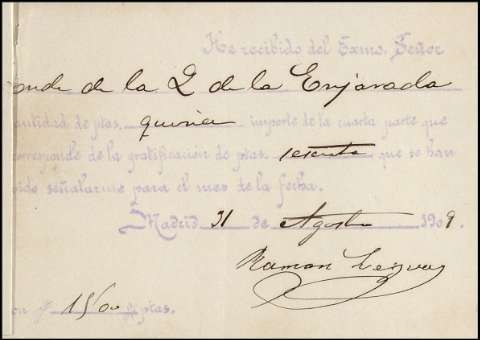 He recibido del Exmo. Señor
onde de la Q de la Enjarada
antidad de ptas. quince importe de la cuarta parte que
corresponde de la gratificación de ptas. sesenta que se han
ido señalarme para el mes de la fecha.
Madrid 31 de Agosto 1909.
Ramon
on # 15,00 ptas.